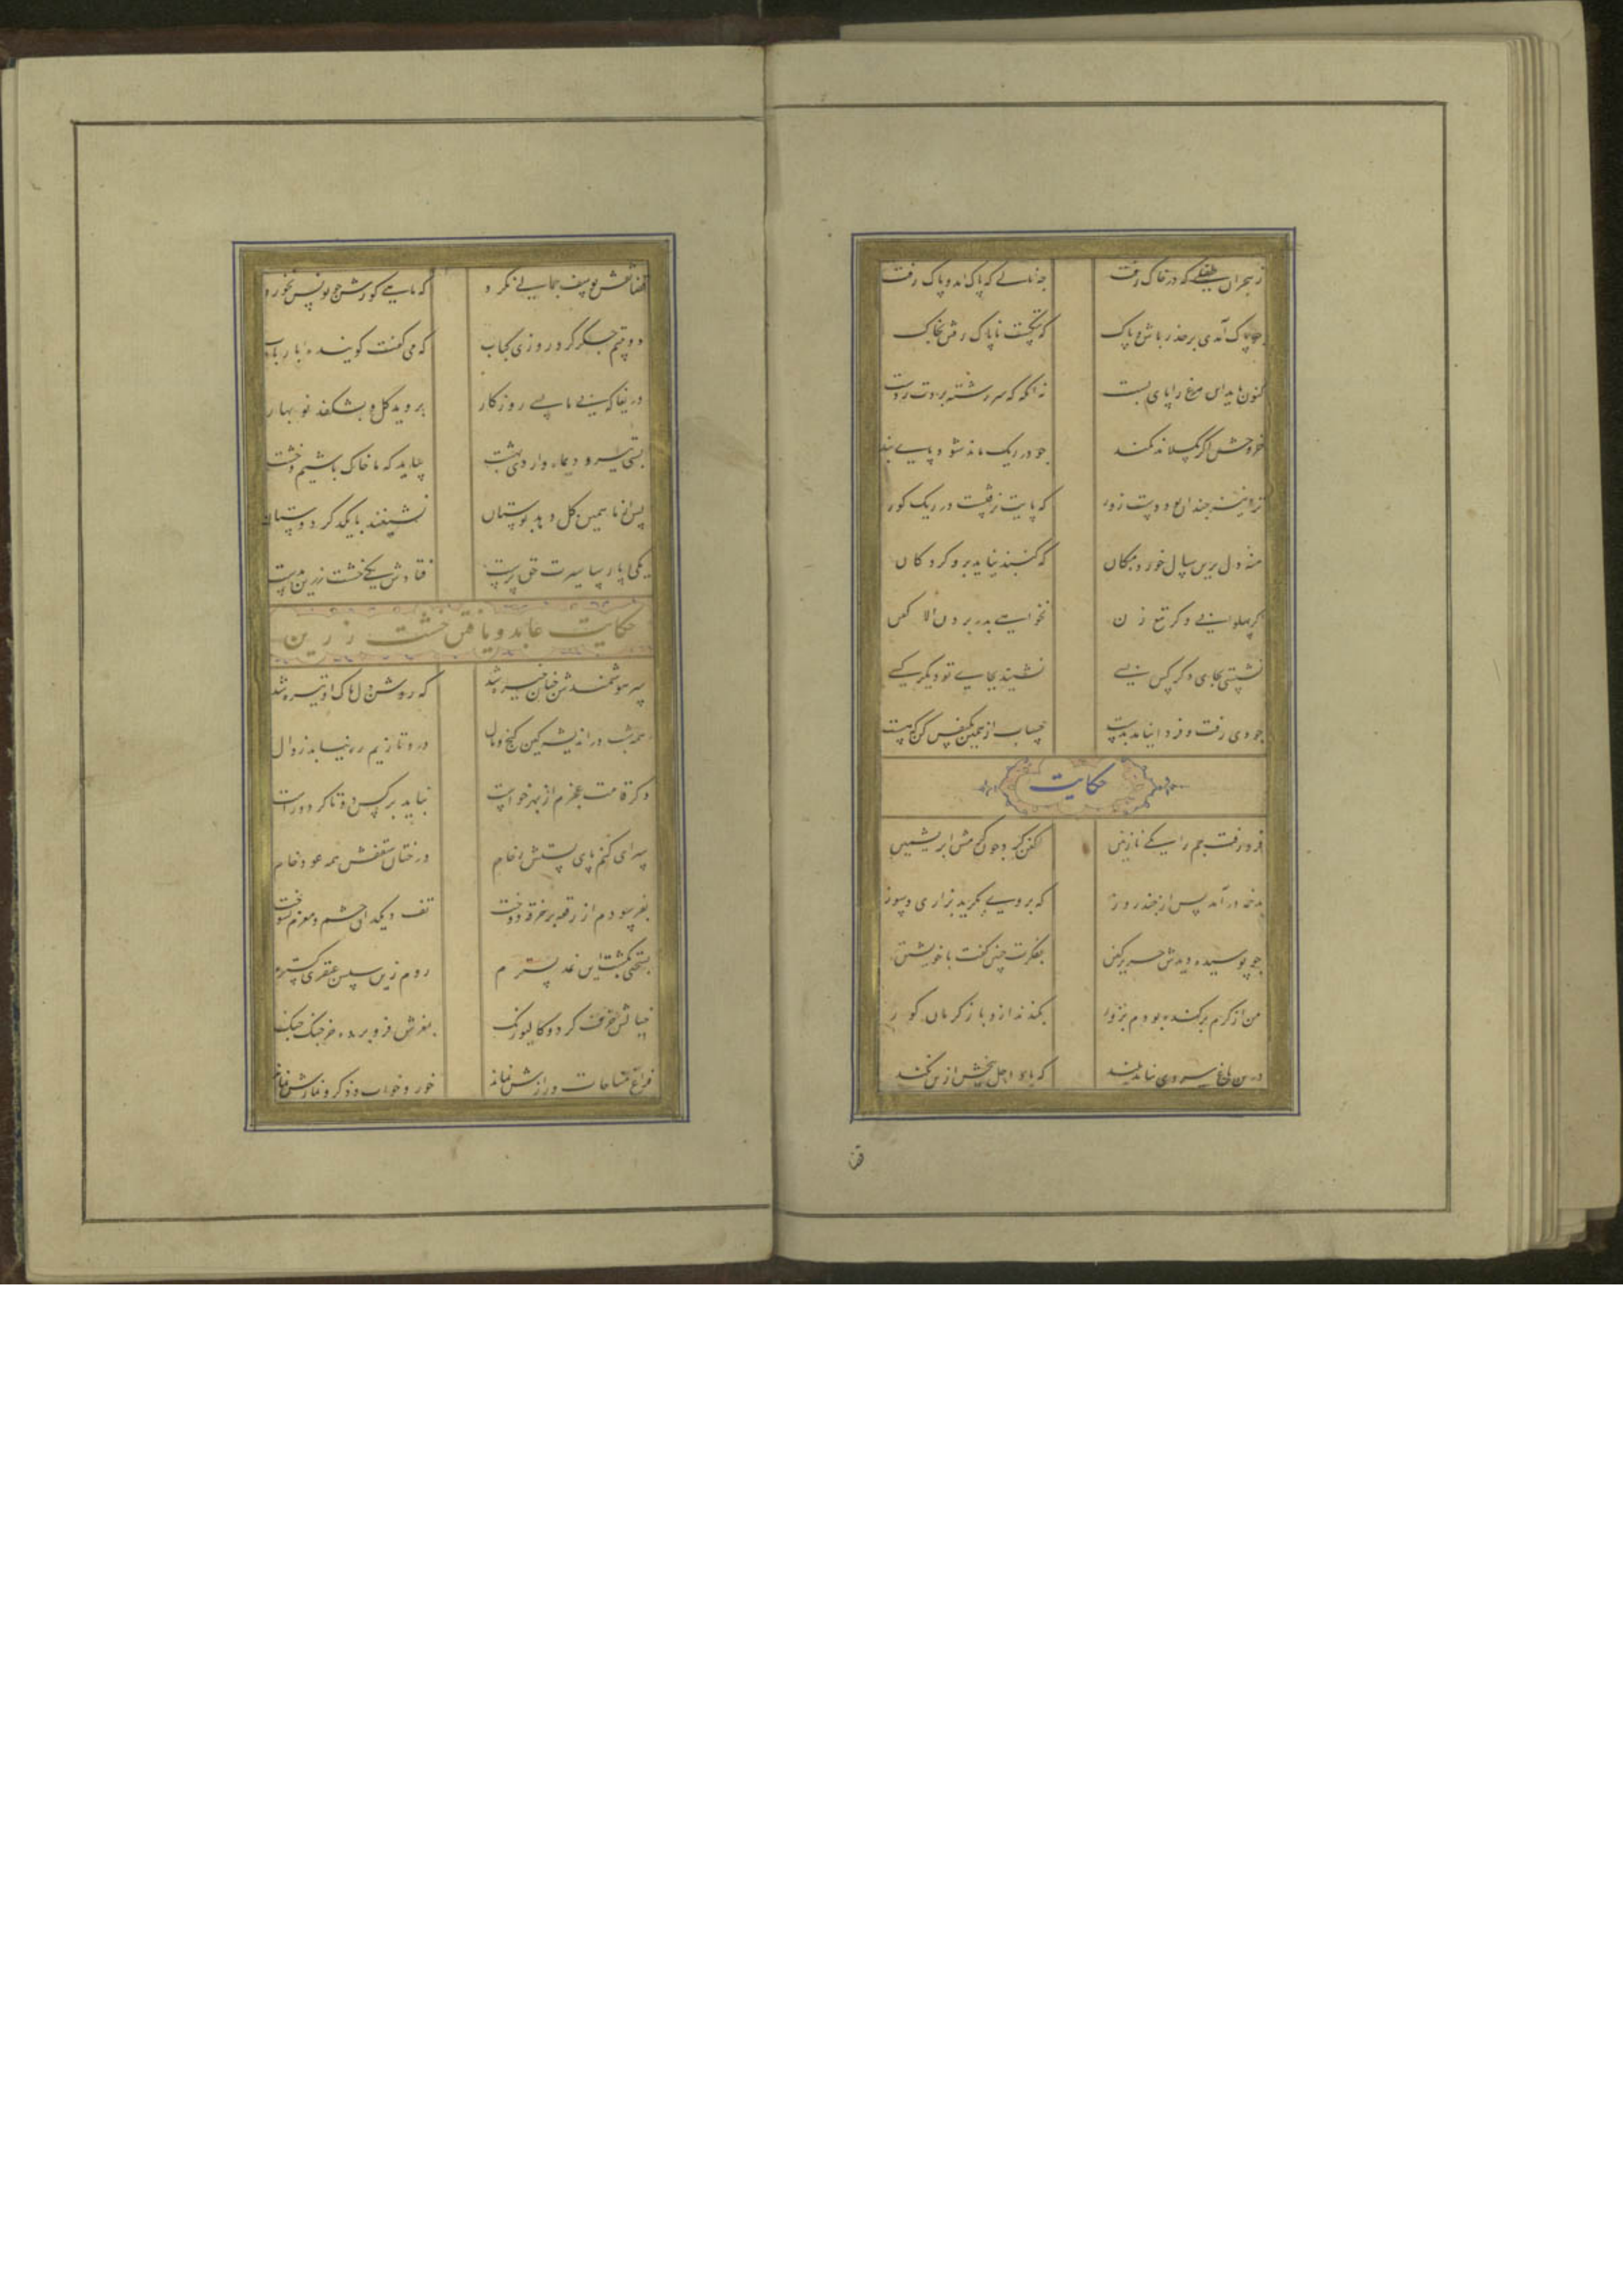 ز هجران طفلی که در خاک رفت چه نالی که پاک آمد و پاک رفت
چو پاک آمدی بر حذر باش و پاک که ننگست ناپاک رفتن بخاک
کنون باید این مرغ را پای بست نه آنکه که سررشته بردت ز دست
خروش اگر بگسلاند کمند چو در ریک ماند شود پای بند
ترا نیز چندان بود دست زور که پایت نرفتست در ریک کور
منه دل برین سال خورد مکان که کنبد نیاید برو کردکان
اگر پهلوانی و کر تیغ زن نخواهی بدر بردن الا کفن
نشستی بجای دکر کس بسی نشیند بجای تو دیکر کسی
چو دی رفت و فردا نیامد بدست حساب از همین یکنفس کن که هست
حکایت
فرو رفت جم را یکی نازنین کفن کرد چون کرمش ابریشمین
بدخمه در آمد پس از چند روز که بر وی بکرید بزاری و سوز
چو پوسیده دیدش حریر کفن بفکرت چنین کفت با خویشتن
من از کرم برکنده بودم بزور بکندند ازو باز کرمان کور
درین باغ سروی نیامد بلند که باد اجل بیخش از بن نکند
قض
قضا نقش یوسف جمالی نکرد که ماهی کورش چو یونس نخورد
دو بیتم جکر کرد روزی کباب که می کفت کوینده با رباب
دریغا که بی ما بسی روزکار بروید کل و بشکفد نوبهار
بسی تیر و دیماه و اردی بهشت بیاید که ما خاک باشیم و خشت
پس از ما همین کل دهد بوستان نشینند با یکدکر دوستان
یکی پارسا سیرت حق پرست فتادش یکی خشت زرین بدست
حکایت عابد و یافتن خشت زرین
سر هوشمندش چنان خیره شد که روشن دل پاک او تیره شد
همه شب در اندیشه کین کنج و مال درو تا زیم ره نیابد زوال
دکر قامت عجزم از بهر خواست نباید بر کس دوتا کرد و راست
سرای کنم پای بستش رخام درختان سقفش همه عود خام
بفرسودم از رقعه بر خرقه دوخت تف دیکدان چشم و مغزم بسوخت
بسختی بکشت این نمد بسترم روم زین سپس عبقری کسترم
خیالش خرف کرد و کالیو رنک بمغزش فرو برده خرچنک چنک
فراغ مناجات و رازش نماند خور و خواب و ذکر و نمازش نماند